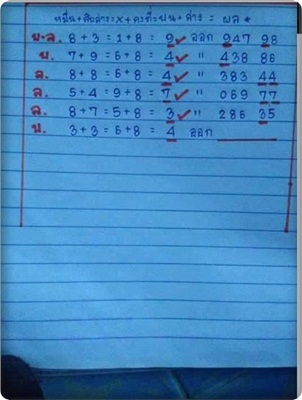 หมื่น + สิบล่าง = x + คงที่ = บน + ล่าง = ผล *
บ-ล. 8 + 3 = 1 + 8 = 9 ✓ ออก 947 98
บ. 7 + 9 = 6 + 8 = 4 ✓ " 438 86
ล. 8 + 8 = 6 + 8 = 4 ✓ " 383 44
ล. 5 + 4 = 9 + 8 = 7 ✓ " 069 77
ล. 8 + 7 = 5 + 8 = 3 ✓ " 286 35
บ. 3 + 3 = 6 + 8 = 4 ออก